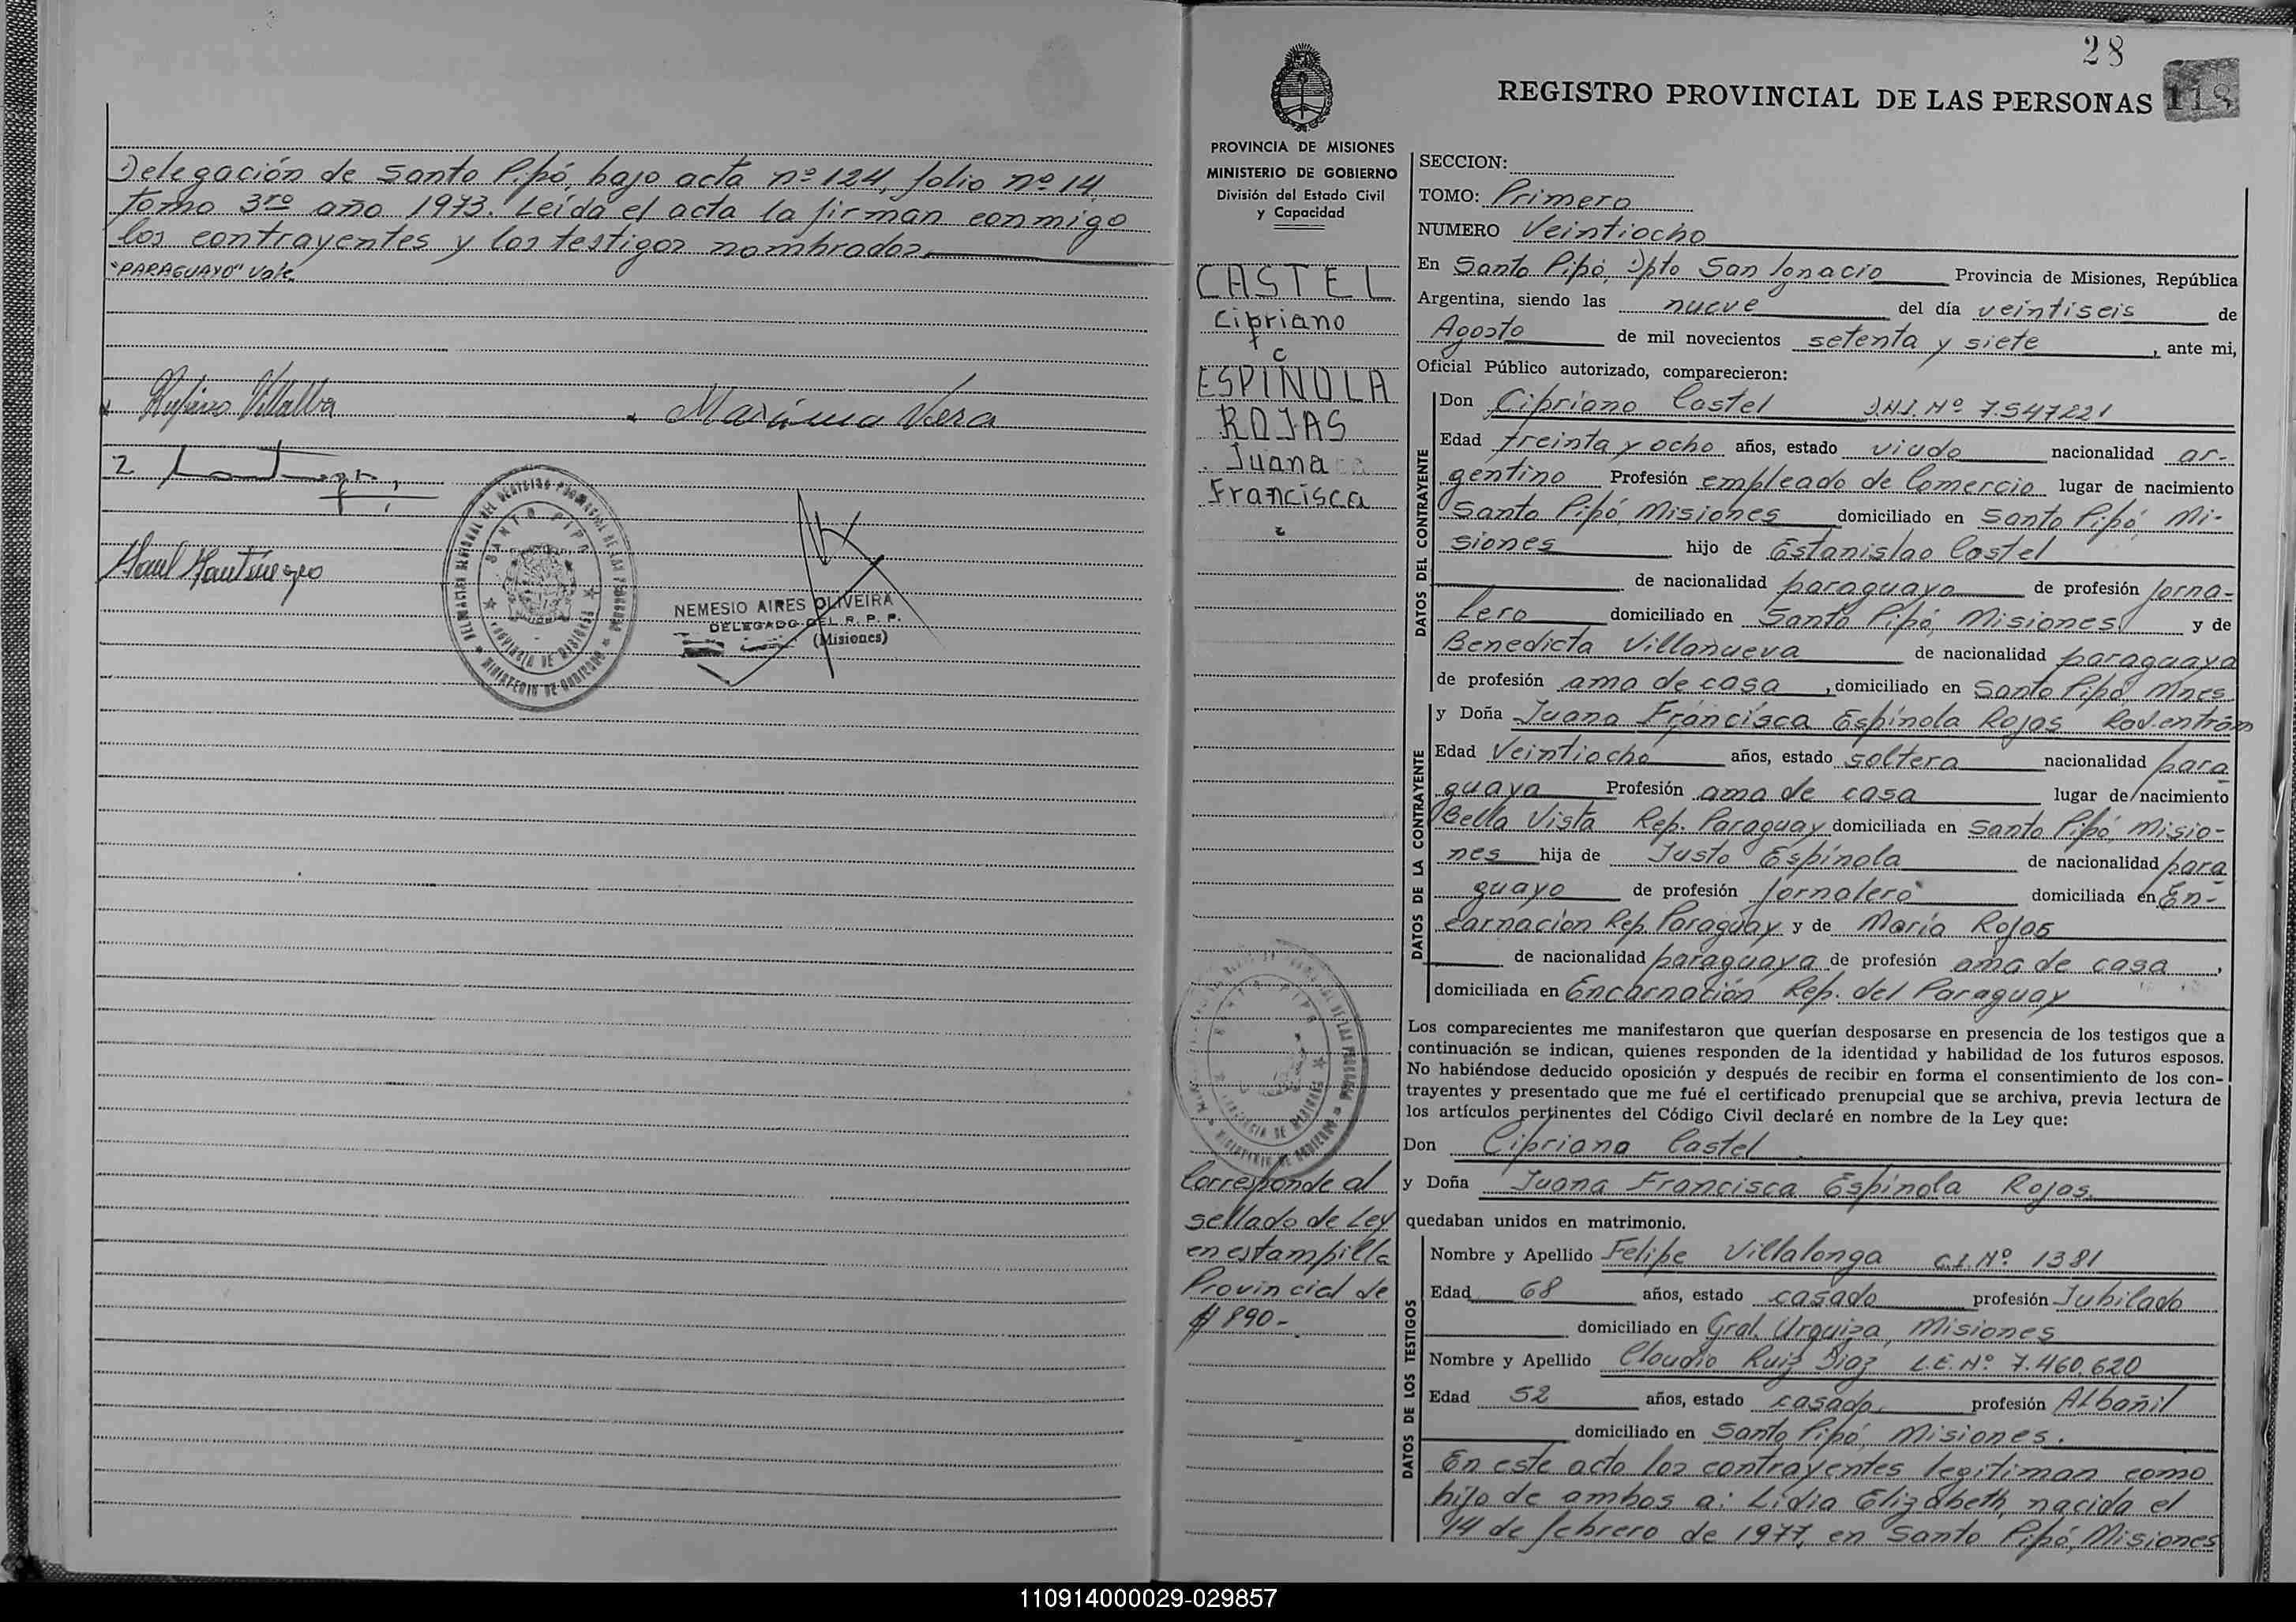 Delegación de Santo Pipó, bajo acta nº 124, folio nº 14,
tomo 3ro año 1973. Leída el acta la firman conmigo
los contrayentes y los testigos nombrados.
"PARAGUAYO" Vale.
Rufino Villalba
Máxima Vera
SANTO PIPO
PROVINCIA DE MISIONES
MINISTERIO DE GOBIERNO
NEMESIO AIRES OLIVEIRA
DELEGADO DEL R. P. P.
(Misiones)
28
REGISTRO PROVINCIAL DE LAS PERSONAS
118
PROVINCIA DE MISIONES
MINISTERIO DE GOBIERNO
División del Estado Civil
y Capacidad
CASTEL
Cipriano
c
ESPINOLA
ROJAS
Juana
Francisca
SECCION:
TOMO: Primero
NUMERO Veintiocho
En Santo Pipó, Dpto San Ignacio Provincia de Misiones, República
Argentina, siendo las nueve del día veintiseis de
Agosto de mil novecientos setenta y siete, ante mi,
Oficial Público autorizado, comparecieron:
DATOS DEL CONTRAYENTE
Don Cipriano Castel D.N.I. Nº 7.547221
Edad treinta y ocho años, estado viudo nacionalidad ar-
gentino Profesión empleado de Comercio lugar de nacimiento
Santo Pipó, Misiones domiciliado en Santo Pipó, Mi-
siones hijo de Estanislao Castel
de nacionalidad paraguayo de profesión jorna-
lero domiciliado en Santo Pipó, Misiones y de
Benedicta Villanueva de nacionalidad paraguaya
de profesión ama de casa, domiciliado en Santo Pipó, Mnes.
DATOS DE LA CONTRAYENTE
y Doña Juana Francisca Espínola Rojas Rad. en trám
Edad Veintiocho años, estado soltera nacionalidad para
guaya Profesión ama de casa lugar de nacimiento
Bella Vista Rep. Paraguay domiciliada en Santo Pipó, Misio-
nes hija de Justo Espínola de nacionalidad para
guayo de profesión jornalero domiciliada en En-
carnacion Rep. Paraguay y de María Rojas
de nacionalidad paraguaya de profesión ama de casa,
domiciliada en Encarnación Rep. del Paraguay
Los comparecientes me manifestaron que querían desposarse en presencia de los testigos que a
continuación se indican, quienes responden de la identidad y habilidad de los futuros esposos.
No habiéndose deducido oposición y después de recibir en forma el consentimiento de los con-
trayentes y presentado que me fué el certificado prenupcial que se archiva, previa lectura de
los artículos pertinentes del Código Civil declaré en nombre de la Ley que:
Don Cipriano Castel
y Doña Juana Francisca Espínola Rojas.
quedaban unidos en matrimonio.
Corresponde al
sellado de Ley
en estampilla
Provincial de
$ 890-
DATOS DE LOS TESTIGOS
Nombre y Apellido Felipe Villalonga C.I. Nº 1381
Edad 68 años, estado casado profesión Jubilado
domiciliado en Gral. Urquiza, Misiones
Nombre y Apellido Claudio Ruiz Diaz L.E. Nº 7.460.620
Edad 52 años, estado casado profesión Albañil
domiciliado en Santo Pipó, Misiones.
En este acto los contrayentes legitiman como
hijo de ambos a: Lidia Elizabeth, nacida el
14 de febrero de 1977, en Santo Pipó, Misiones
110914000029-029857